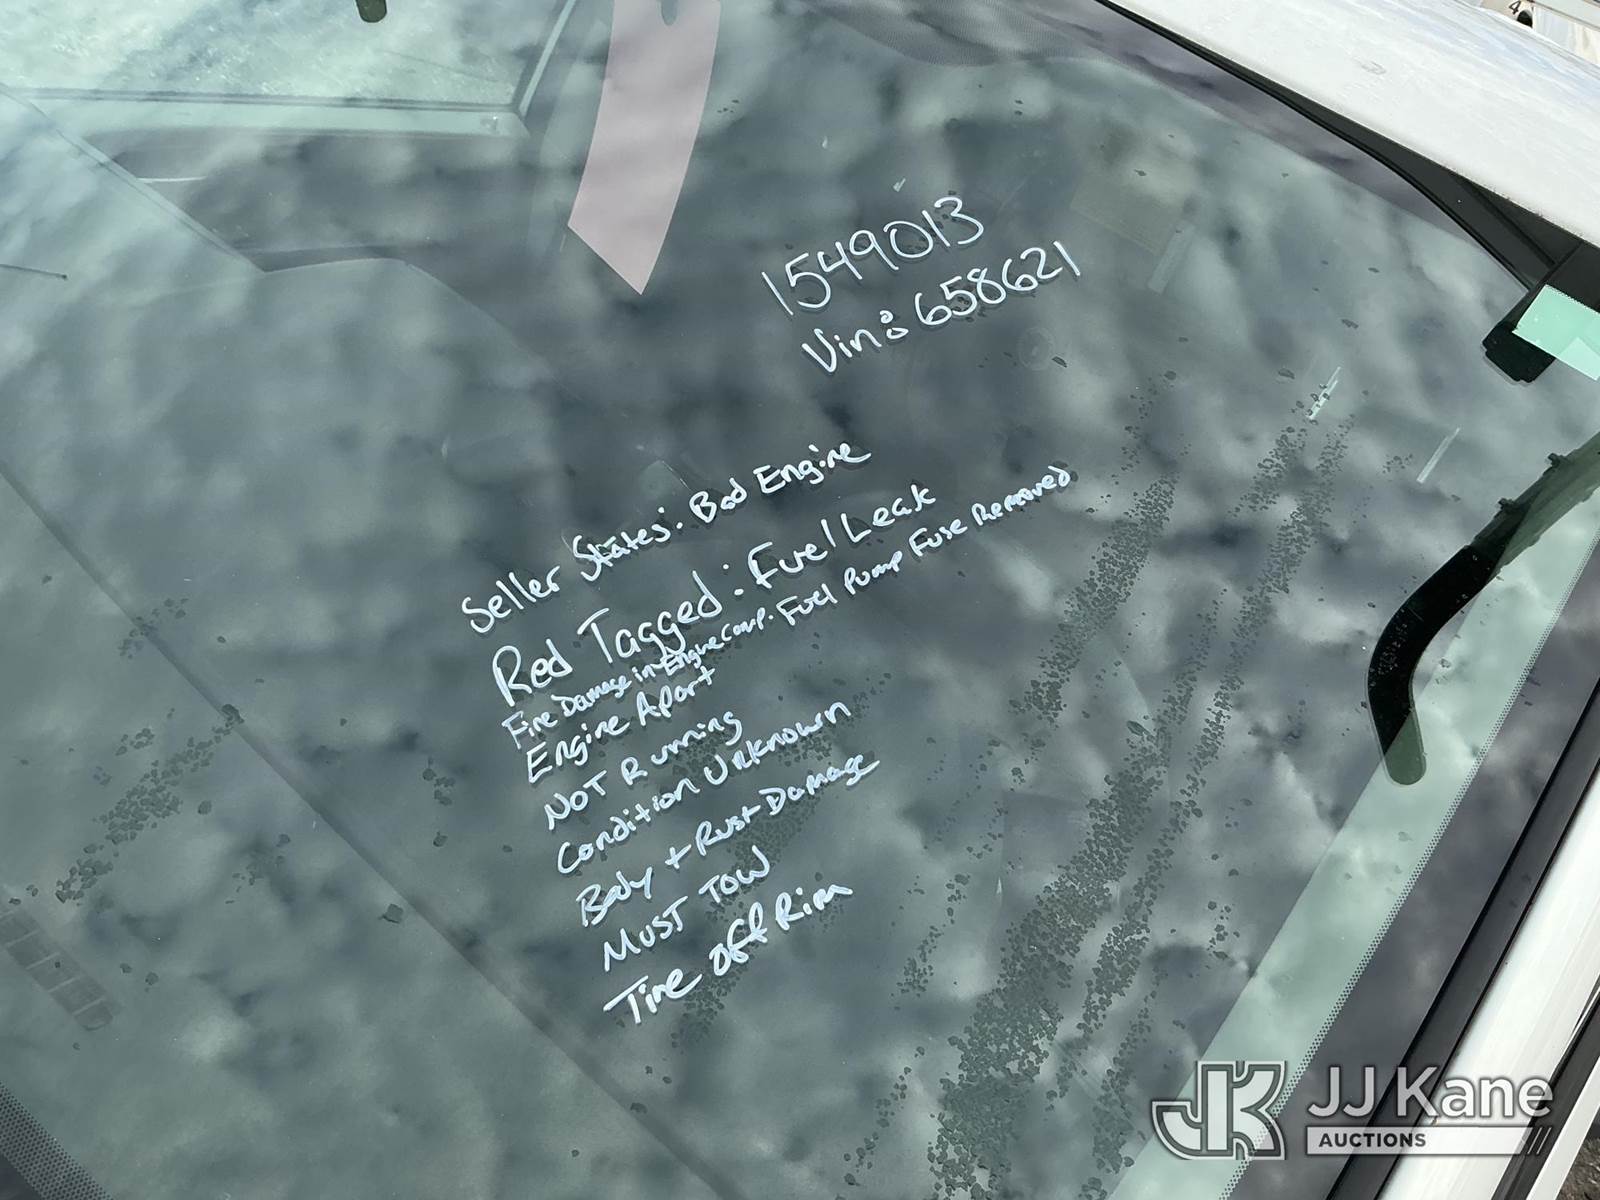 1549013
Vin: 658621
Seller States: Bad Engine
Red Tagged: Fuel Leak
Fire Damage in Engine Comp. Fuel Pump Fuse Removed
Engine Apart
NOT Running
Condition Unknown
Body + Rust Damage
MUST TOW
Tire off Rim
JK JJ Kane
AUCTIONS